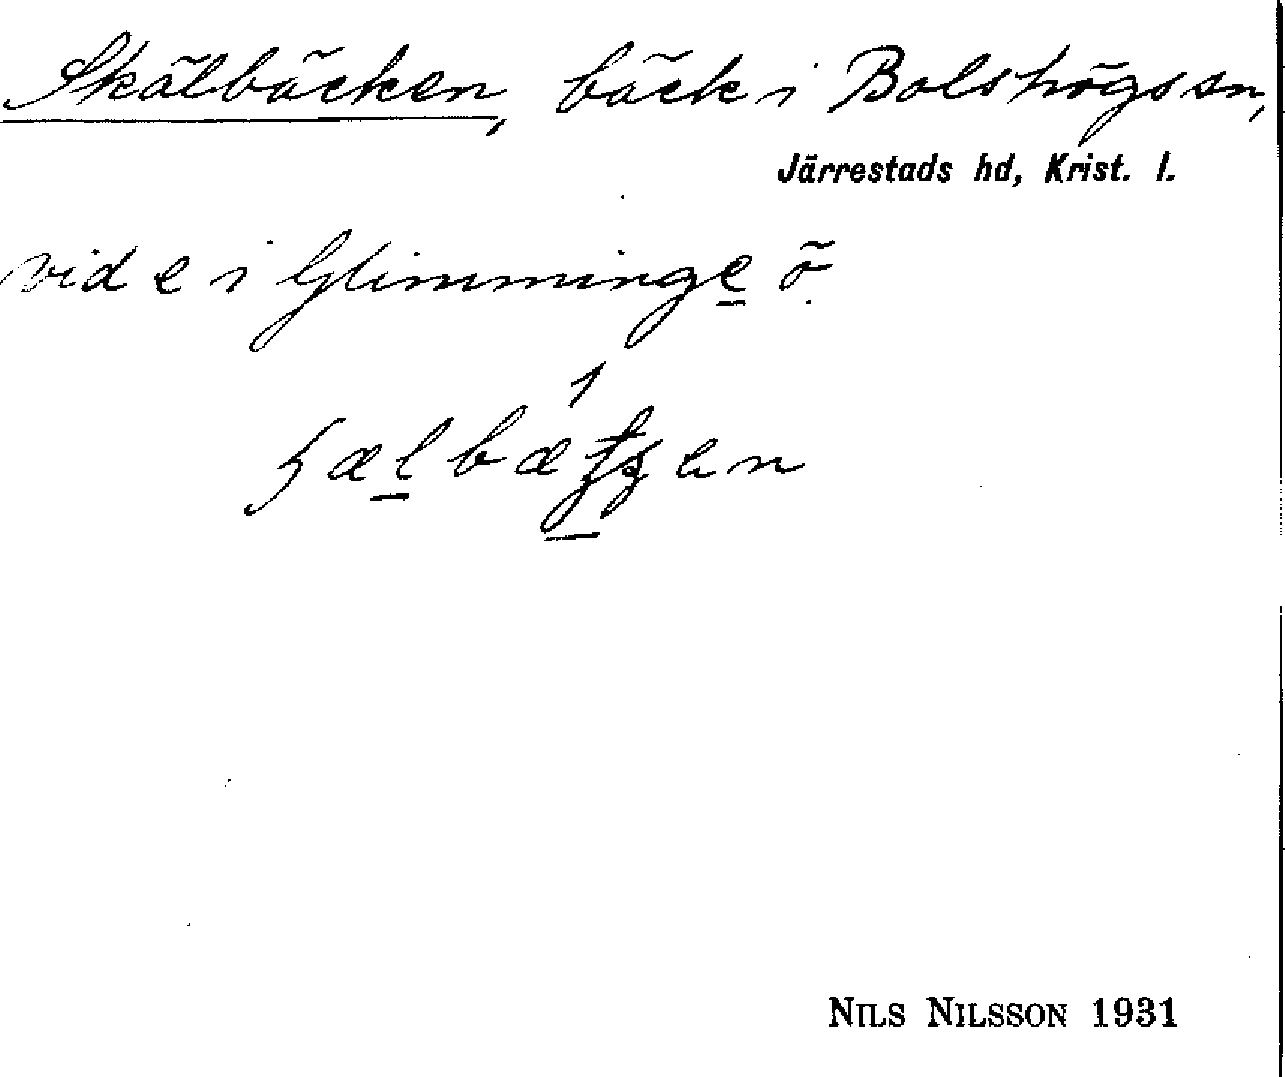 Skälbäcken, bäck i Bolshögs sn,
Järrestads hd, Krist. l.
vid e i Glimminge ö.
NILS NILSSON 1931